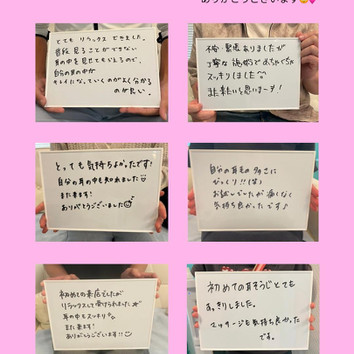 ありがとうございます
とても リラックス できました。
普段 見ることができない
耳の中を 見せてもらえるので、
自分の耳の中が
キレイになっていくのがよく分かる
のが良い。
不安・緊張 ありましたが
丁寧な 施術で めちゃくちゃ
スッキリしました
また来たいと思いまーす!
とっても気持ちよかったです!
自分の耳の中も知れました
また来ます!
ありがとうございました
自分の耳毛の多さに
びっくり!!(笑)
お試しでしたが 痛くなく
気持ち良かったです♪
初めての来店でしたが
リラックスして受けられました
耳の中もスッキリ
また来ます!
ありがとうございます!!
初めての耳そうじとても
すっきりしました。
マッサージも気持ち良かった
です。